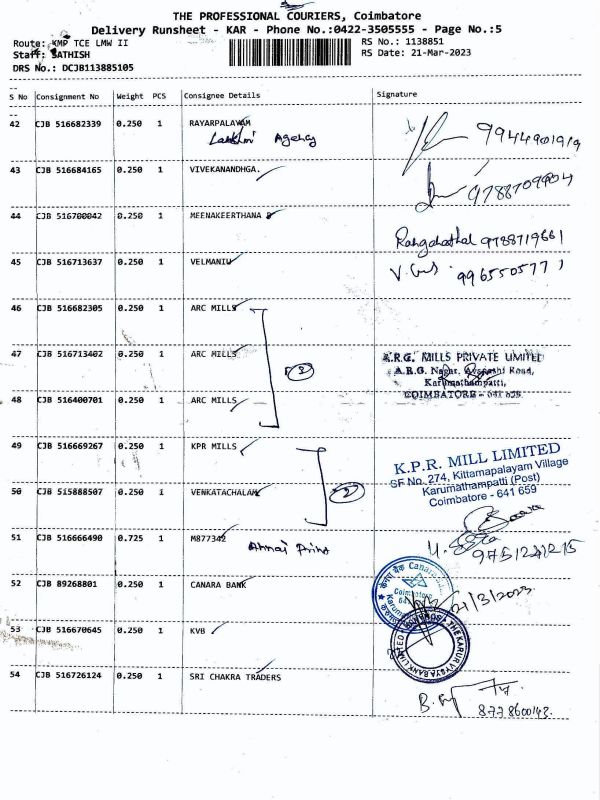 THE PROFESSIONAL COURIERS, Coimbatore
Delivery Runsheet - KAR - Phone No.:0422-3505555 - Page No.:5
Route: KMP TCE LMW II RS No.: 1138851
Staff: SATHISH RS Date: 21-Mar-2023
DRS No.: DCJB113885105
S No Consignment No Weight PCS Consignee Details Signature
42 CJB 516682339 0.250 1 RAYARPALAYAM
Lakshmi Agency 9944901919
43 CJB 516684165 0.250 1 VIVEKANANDHGA.
9788709904
44 CJB 516700042 0.250 1 MEENAKEERTHANA
9788719661
45 CJB 516713637 0.250 1 VELMANI
9965505771
46 CJB 516682305 0.250 1 ARC MILLS
47 CJB 516713402 0.250 1 ARC MILLS (3) A.R.G. MILLS PRIVATE LIMITED
A.R.G. Nagar, Avanashi Road,
Karumathampatti,
48 CJB 516400701 0.250 1 ARC MILLS COIMBATORE - 641 659
49 CJB 516669267 0.250 1 KPR MILLS K.P.R. MILL LIMITED
SF No. 274, Kittamapalayam Village
Karumathampatti (Post)
50 CJB 515888507 0.250 1 VENKATACHALAM (2) Coimbatore - 641 659
51 CJB 516666490 0.725 1 M877342
Annai Prints
52 CJB 89268801 0.250 1 CANARA BANK
Canara
Coimbatore
21/3/2023
53 CJB 516670645 0.250 1 KVB
THE KARUR VYSYA BANK LIMITED
54 CJB 516726124 0.250 1 SRI CHAKRA TRADERS